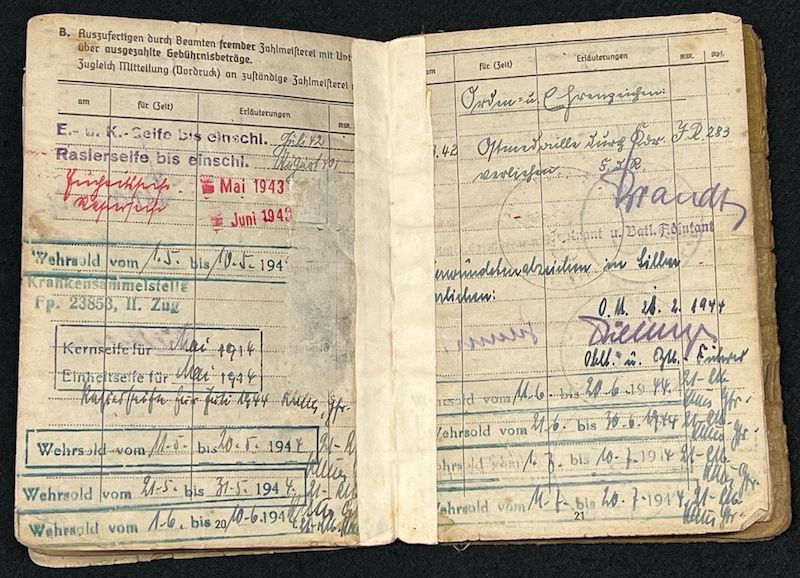 B. Auszufertigen durch Beamten fremder Zahlmeisterei mit Unt
über ausgezahlte Gebührnisbeträge.
Zugleich Mitteilung (Vordruck) an zuständige Zahlmeisterei
am für (Zeit) Erläuterungen RM.
E.- u. K.-Seife bis einschl. Juli 42
Rasierseife bis einschl. August
Mai 1943
Juni 1943
Wehrsold vom 1.5. bis 10.5. 194
Krankensammelstelle
Fp. 23853, II. Zug
Kernseife für Mai 1944
Einheitseife für Mai 1944
Rasierseife für Juli 1944
Wehrsold vom 11.5. bis 20.5. 1944
Wehrsold vom 21.5. bis 31.5. 1944
Wehrsold vom 1.6. bis 10.6. 194
20
am für (Zeit) Erläuterungen RM. Rpf.
Orden- u. Ehrenzeichen:
.42 Ostmedaille durch Kdr. J.R. 283
verliehen. F.d.R.
Brandt
tnant u. Batl. Adjutant
erwundetenabzeichen in Silber
rliehen:
O.U. 26.2.1944
Oblt. u. Führer
ehrsold vom 11.6. bis 20.6. 1944
Wehrsold vom 21.6. bis 30.6. 1944
ehrsold vom 1.7. bis 10.7. 1944
Wehrsold vom 11.7. bis 20.7. 1944
21